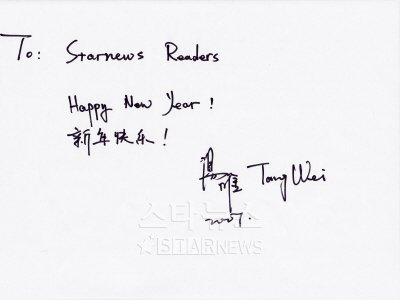 To: Starnews Readers
Happy New Year!
新年快乐!
Tang Wei
2007.
스타뉴스
★STARNEWS